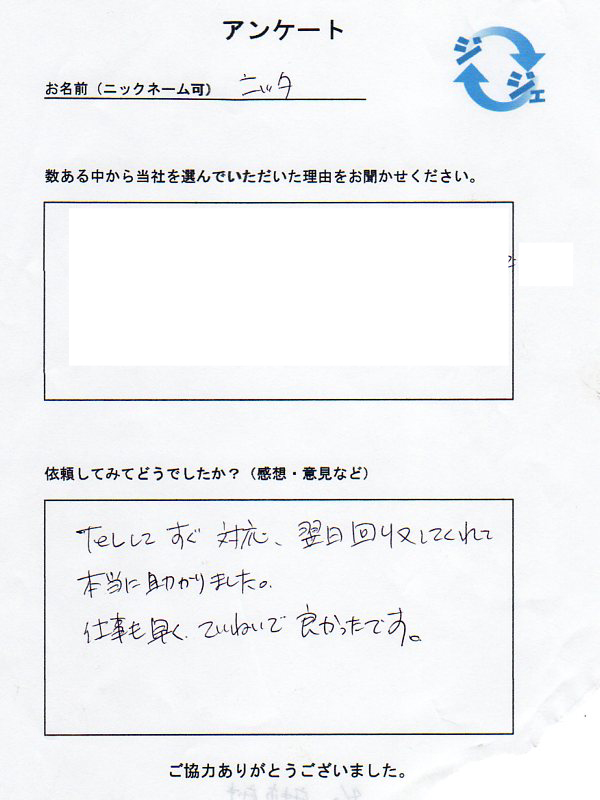 アンケート
ジジェ
お名前（ニックネーム可） ニック
数ある中から当社を選んでいただいた理由をお聞かせください。
依頼してみてどうでしたか？（感想・意見など）
Telしてすぐ対応、翌日回収してくれて
本当に助かりました。
仕事も早く、ていねいで良かったです。
ご協力ありがとうございました。